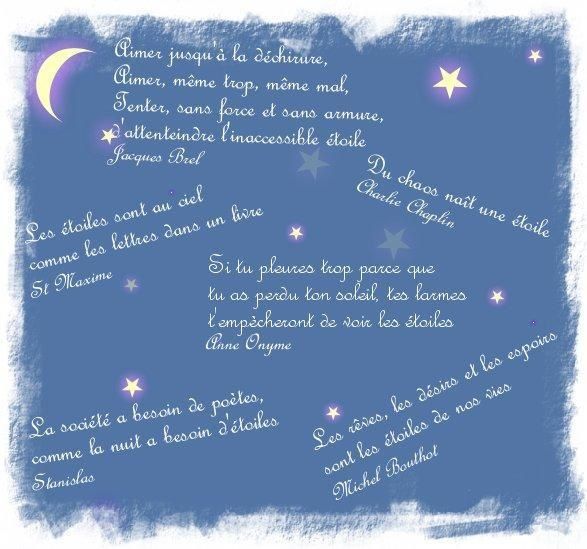 Aimer jusqu'à la déchirure,
Aimer, même trop, même mal,
Tenter, sans force et sans armure,
d'attenteindre l'inaccessible étoile
Jacques Brel
Du chaos naît une étoile
Charlie Chaplin
Les étoiles sont au ciel
comme les lettres dans un livre
St Maxime
Si tu pleures trop parce que
tu as perdu ton soleil, tes larmes
t'empècheront de voir les étoiles
Anne Onyme
La société a besoin de poètes,
comme la nuit a besoin d'étoiles
Stanislas
Les rêves, les désirs et les espoirs
sont les étoiles de nos vies
Michel Bouthot